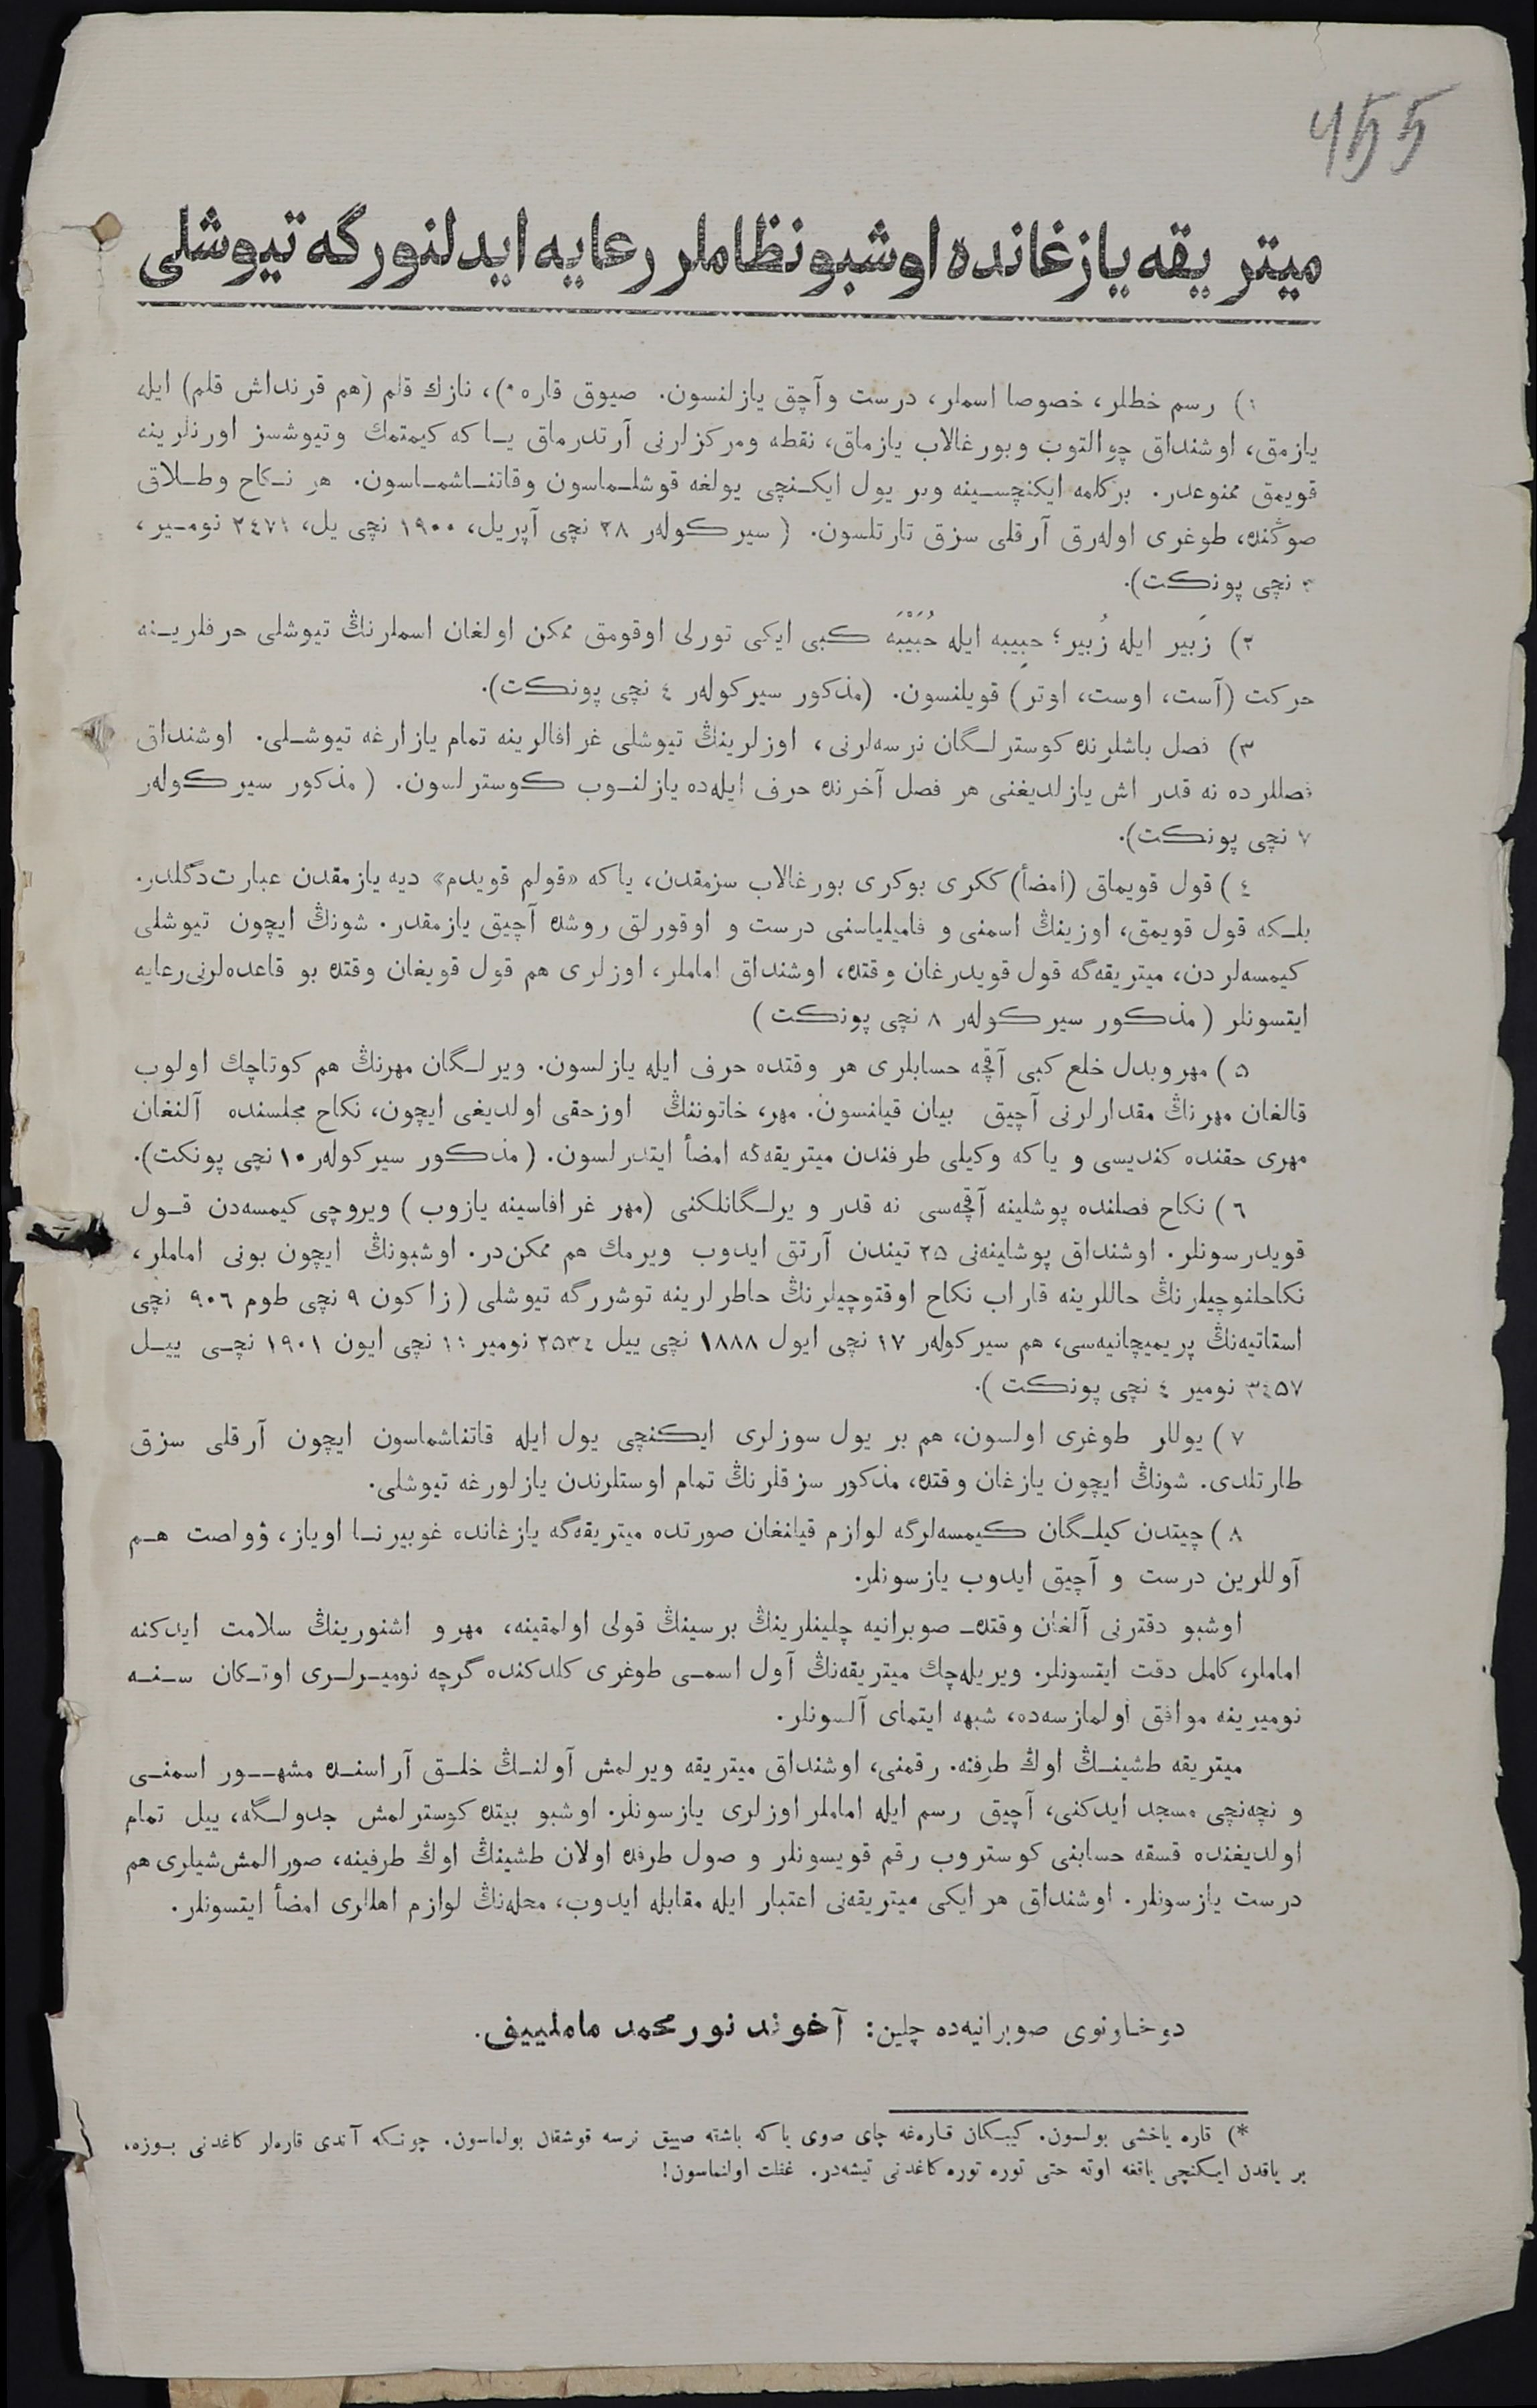 455
میتریقه یازغانده اوشبو نظاملر رعایه ایدلنورگه تیوشلی
۱) رسم خطلر، خصوصا اسملر، درست وآچق یازلنسون. صیوق قاره *)، نازك قلم (هم قرنداش قلم) ایله
یازمق، اوشنداق چوالتوب وبورغالاب یازماق، نقطه ومرکزلرنی آرتدرماق یــاکه کیمتمك وتیوشسز اورنلرینه
قویمق ممنوعدر. برکلمه ایکنچســینه وبر یول ایکــنچی یولغه قوشلــماسون وقاتنــاشمــاسون. هر نــکاح وطــلاق
صوڭنده، طوغری اوله‌رق آرقلی سزق تارتلسون. (سیرکوله‌ر ۲۸ نچی آپریل، ۱۹۰۰ نچی یل، ۲٤۷۱ نومــیر،
۳ نچی پونکت).
۲) زَبیر ایله زُبیر؛ حبِیبه ایله حُبَیْبَه کبی ایکی تورلی اوقومق ممکن اولغان اسملرنڭ تیوشلی حرفلریــنه
حرکت (آست، اوست، اوتر) قویلنسون. (مذکور سیرکوله‌ر ٤ نچی پونکت).
۳) فصل باشلرنده کوسترلــگان نرسه‌لرنی، اوزلرینڭ تیوشلی غرافالرینه تمام یازارغه تیوشــلی. اوشنداق
فصللرده نه قدر اش یازلدیغنی هر فصل آخرنده حرف ایله‌ده یازلنــوب کوسترلسون. (مذکور سیرکوله‌ر
۷ نچی پونکت).
٤) قول قویماق (أمضأ) ککری بوکری بورغالاب سزمقدن، یاکه «قولم قویدم» دیه یازمقدن عبارت دگلدر.
بلــکه قول قویمق، اوزینڭ اسمنی و فامیلیاسنی درست و اوقورلق روشده آچیق یازمقدر. شونڭ ایچون تیوشلی
کیمسه‌لردن، میتریقه‌گه قول قویدرغان وقتده، اوشنداق اماملر، اوزلری هم قول قویغان وقتده بو قاعده‌لرنی رعایه
ایتسونلر (مذکور سیرکوله‌ر ۸ نچی پونکت)
۵) مهر وبدل خلع کبی آقچه حسابلری هر وقتده حرف ایله یازلسون. ویرلــگان مهرنڭ هم کوتاچك اولوب
قالغان مهرنڭ مقدارلرنی آچیق بیان قیلنسون. مهر، خاتوننڭ اوزحقی اولدیغی ایچون، نکاح مجلسنده آلنغان
مهری حقنده کندیسی و یاکه وکیلی طرفندن میتریقه‌گه امضأ ایتدرلسون. (مذکور سیرکوله‌ر ۱۰ نچی پونکت).
٦) نکاح فصلنده پوشلینه آقچه‌سی نه قدر ویرلــگانلکنی (مهر غرافاسینه یازوب) ویروچی کیمسه‌دن قــول
قویدرسونلر. اوشنداق پوشلینه‌نی ۲۵ تیندن آرتق ایدوب ویرمك هم ممکن‌در. اوشبونڭ ایچون بونی اماملر،
نکاحلنوچیلرنڭ حاللرینه قاراب نکاح اوقتوچیلرنڭ خاطرلرینه توشررگه تیوشلی (زاکون ۹ نچی طوم ۹۰٦ نچی
استاتیه‌نڭ پریمیچانیه‌سی، هم سیرکوله‌ر ۱۷ نچی ایول ۱۸۸۸ نچی ییل ۲۵۳٤ نومیر ۱۱ نچی ایون ۱۹۰۱ نچــی ییــل
۳٤۵۷ نومیر ٤ نچی پونکت).
۷) یوللر طوغری اولسون، هم بر یول سوزلری ایکنچی یول ایله قاتناشماسون ایچون آرقلی سزق
طارتلدی. شونڭ ایچون یازغان وقتده، مذکور سزقلرنڭ تمام اوستلرندن یازلورغه تیوشلی.
۸) چیتدن کیلــگان کیمسه‌لرگه لوازم قیلنغان صورتده میتریقه‌گه یازغانده غوبیرنــا اویاز، ۋولصت هــم
آوللرین درست و آچیق ایدوب یازسونلر.
اوشبو دفترنی آلغان وقتده صوبرانیه چلینلرینڭ برسینڭ قولی اولمقینه، مهر و اشنورینڭ سلامت ایدکنه
اماملر، کامل دقت ایتسونلر. ویریله‌چك میتریقه‌نڭ آول اسمــی طوغری کلدکنده گرچه نومیــرلــری اوتــکان ســنــه
نومیرینه موافق اولمازسه‌ده، شبهه ایتمای آلسونلر.
میتریقه طشینــڭ اوڭ طرفنه. رقمنی، اوشنداق میتریقه ویرلمش آولنــڭ خلــق آراسنــده مشهــور اسمنــی
و نچه‌نچی مسجد ایدکنی، آچیق رسم ایله اماملر اوزلری یازسونلر. اوشبو بیتده کوسترلمش جدولــگه، ییل تمام
اولدیغنده قسقه حسابنی کوستروب رقم قویسونلر و صول طرفده اولان طشینڭ اوڭ طرفینه، صورالمش شیلری هم
درست یازسونلر. اوشنداق هر ایکی میتریقه‌نی اعتبار ایله مقابله ایدوب، محله‌نڭ لوازم اهللری امضأ ایتسونلر.
دوخاونوی صوبرانیه‌ده چلین: آخوند نور محمد ماملییف.
*) قاره یاخشی بولسون. کیبــکان قاره‌غه چای صوی یاکه باشته صییق نرسه قوشقان بولماسون. چونــکه آندی قاره‌لر کاغدنی بــوزه،
بر یاقدن ایــکنچی یاقغه اوته حتی توره توره کاغدنی تیشه‌در. غفلت اولنماسون!